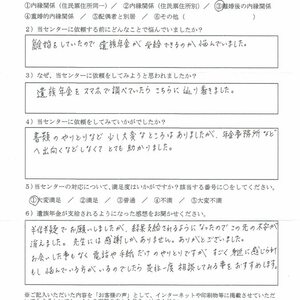 ①内縁関係（住民票住所同一）　/　②内縁関係（住民票住所別）　/　③離婚後の内縁関係
④重婚的内縁関係　/　⑤配偶者と別居　/　⑥その他（　　）
２）当センターに依頼する前にどんなことで悩んでいましたか？
離婚をしていたので遺族年金が受給できるか悩んでいました。
３）なぜ、当センターに依頼をしてみようと思われましたか？
遺族年金をスマホで調べていたらこちらに辿り着きました。
４）当センターに依頼をしてみていかがでしたか？
書類のやりとりなど少し大変なところはありましたが、年金事務所など
へ出向くなどしなくてとても助かりました。
５）当センターの対応について、満足度はいかがですか？該当する番号に○をしてください。
①大変満足　/　②満足　/　③普通　/　④不満　/　⑤大変不満
６）遺族年金が支給されるようになった感想をお聞かせください。
半信半疑でお願いしましたが、結果支給されるようになったのでこの先の不安が
消えました。先生には感謝しかありません。ありがとうございました。
お会いした事もなく電話や手紙だけのやりとりですが、すごく絆に感じられ
もし悩んでいる方がいるのでしたら是非一度相談してみる事をおすすめします。
※ご記入いただいた内容を「お客様の声」として、インターネットや印刷物等に掲載